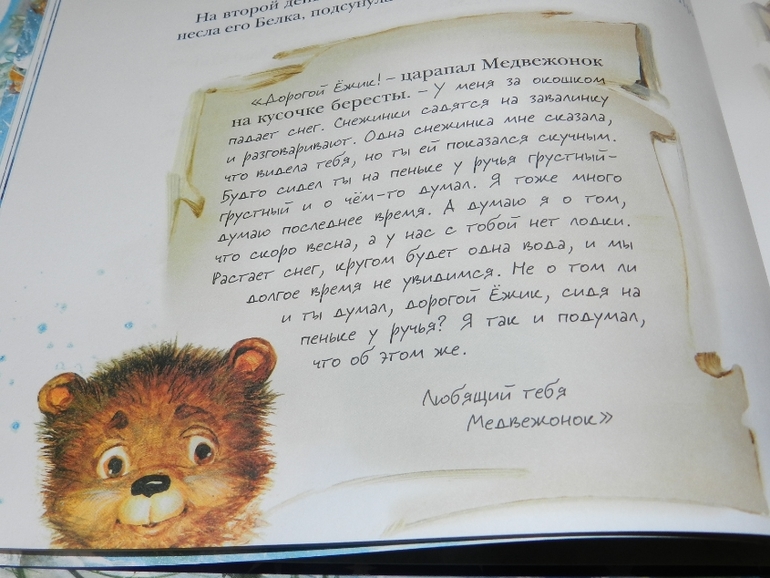 На второй ден
несла его Белка, подсунула
«Дорогой Ёжик! – царапал Медвежонок
на кусочке бересты. – У меня за окошком
падает снег. Снежинки садятся на завалинку
и разговаривают. Одна снежинка мне сказала,
что видела тебя, но ты ей показался скучным.
Будто сидел ты на пеньке у ручья грустный–
грустный и о чём-то думал. Я тоже много
думаю последнее время. А думаю я о том,
что скоро весна, а у нас с тобой нет лодки.
Растает снег, кругом будет одна вода, и мы
долгое время не увидимся. Не о том ли
и ты думал, дорогой Ёжик, сидя на
пеньке у ручья? Я так и подумал,
что об этом же.
Любящий тебя
Медвежонок»